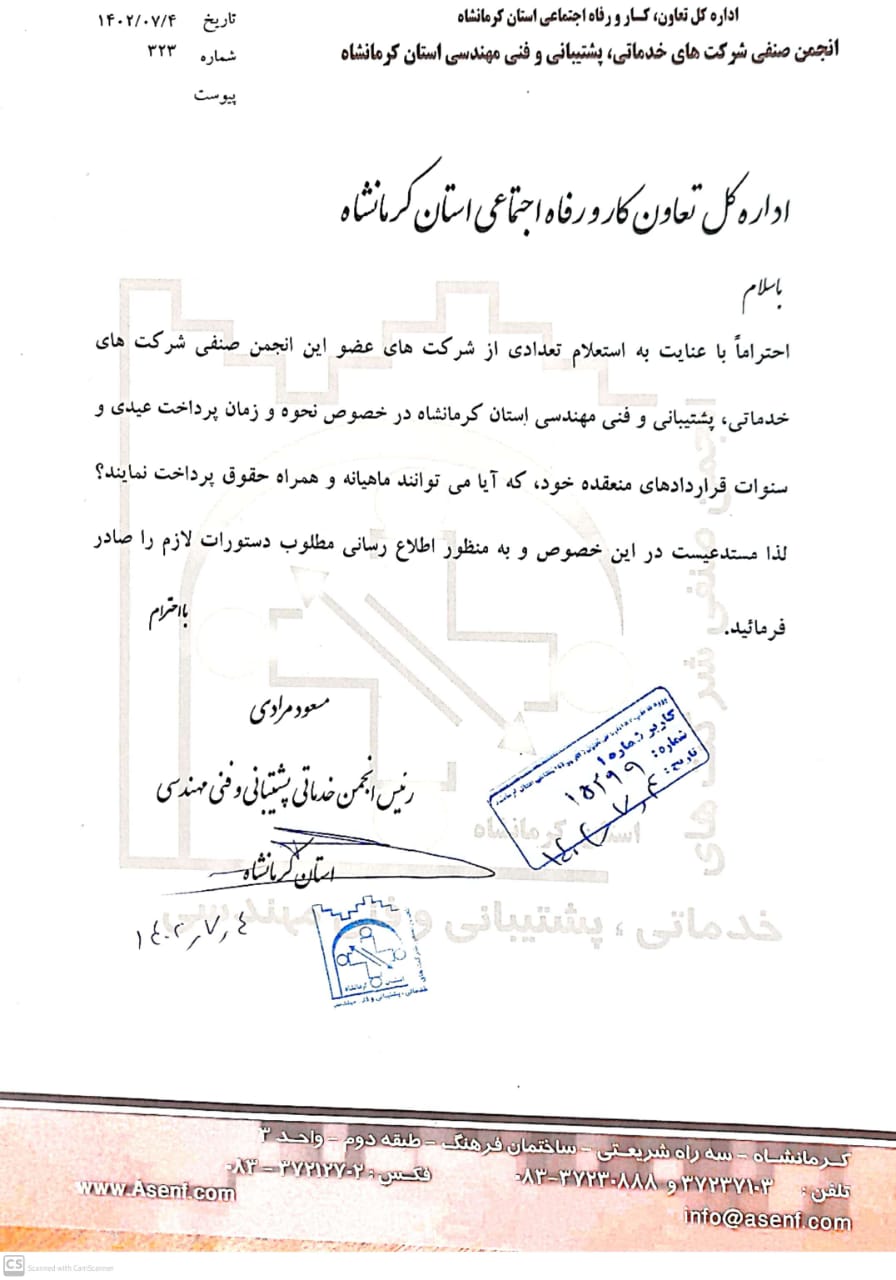 اداره کل تعاون، کار و رفاه اجتماعی استان کرمانشاه
انجمن صنفی شرکت های خدماتی، پشتیبانی و فنی مهندسی استان کرمانشاه
تاریخ ۱۴۰۲/۰۷/۴
شماره ۳۲۳
پیوست
اداره کل تعاون کار و رفاه اجتماعی استان کرمانشاه
باسلام
احتراماً با عنایت به استعلام تعدادی از شرکت های عضو این انجمن صنفی شرکت های
خدماتی، پشتیبانی و فنی مهندسی استان کرمانشاه در خصوص نحوه و زمان پرداخت عیدی و
سنوات قراردادهای منعقده خود، که آیا می توانند ماهیانه و همراه حقوق پرداخت نمایند؟
لذا مستدعیست در این خصوص و به منظور اطلاع رسانی مطلوب دستورات لازم را صادر
فرمائید.
بااحترام
مسعود مرادی
رئیس انجمن خدماتی پشتیبانی و فنی مهندسی
استان کرمانشاه
۱۴۰۲/۷/۴
کاربر شماره ۱
شماره: ۱۵۲۹۹
تاریخ: ۱۴۰۲/۷/۴
انجمن صنفی شرکت های
استان کرمانشاه
خدماتی، پشتیبانی و فنی مهندسی
کرمانشاه - سه راه شریعتی - ساختمان فرهنگ - طبقه دوم - واحد ۳
تلفن: ۳۷۲۳۷۱۰۳ و ۳۷۲۳۰۸۸۸-۰۸۳
فکس: ۳۷۲۱۲۷۰۲ - ۰۸۳
www.Asenf.com
info@asenf.com
CS Scanned with CamScanner